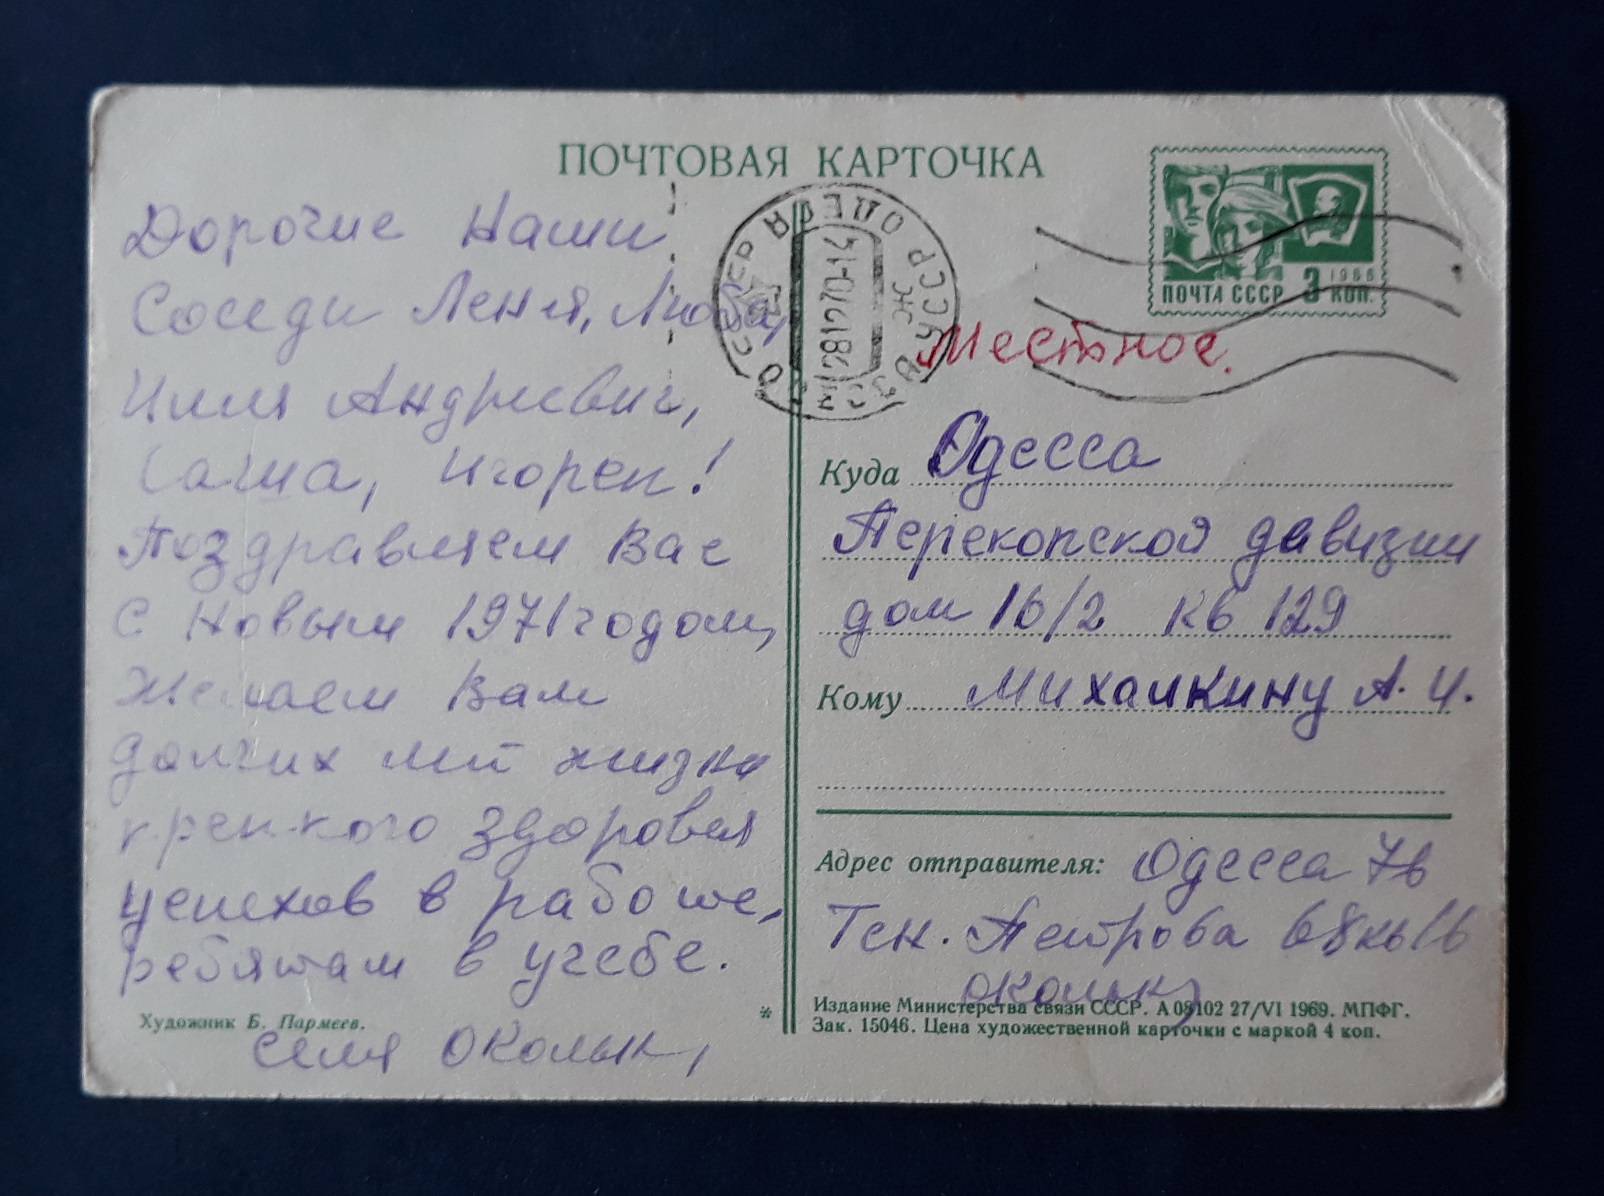 ПОЧТОВАЯ КАРТОЧКА
Дорогие Наши
Соседи Леня, Люба,
Илля Андриевич,
Саша, Игорек!
Поздравляем Вас
с Новым 1971 годом,
Желаем Вам
долгих лет жизни
крепкого здоровья
успехов в работе,
ребятам в учебе.
Художник Б. Пармеев.
семя околык,
ОДЕССА
УССР
281270-14
1966
ПОЧТА СССР 3 КОП.
Местное.
Куда Одесса
Перекопской дивизии
дом 16/2 кв 129
Кому Михайкину А. И.
Адрес отправителя: Одесса 76
Ген. Петрова 68 кв 16
околык
Издание Министерства связи СССР. А 08102 27/VI 1969. МПФГ.
Зак. 15046. Цена художественной карточки с маркой 4 коп.
*